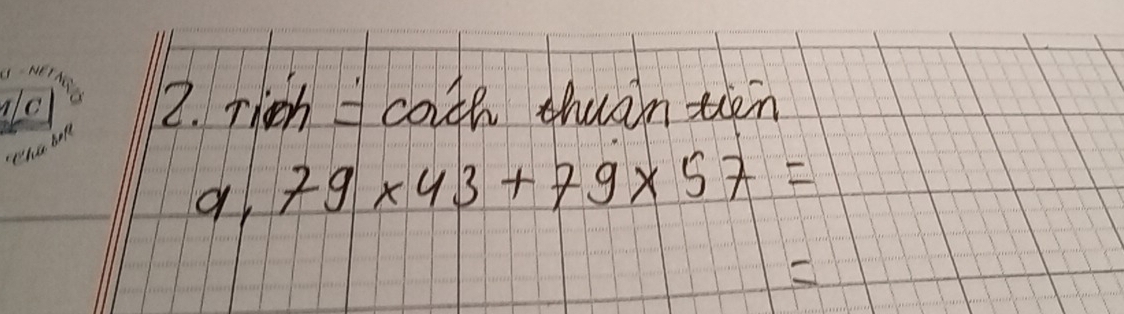 2. Tính = cách thuận tiện
a, 79 × 43 + 79 × 57 =
=